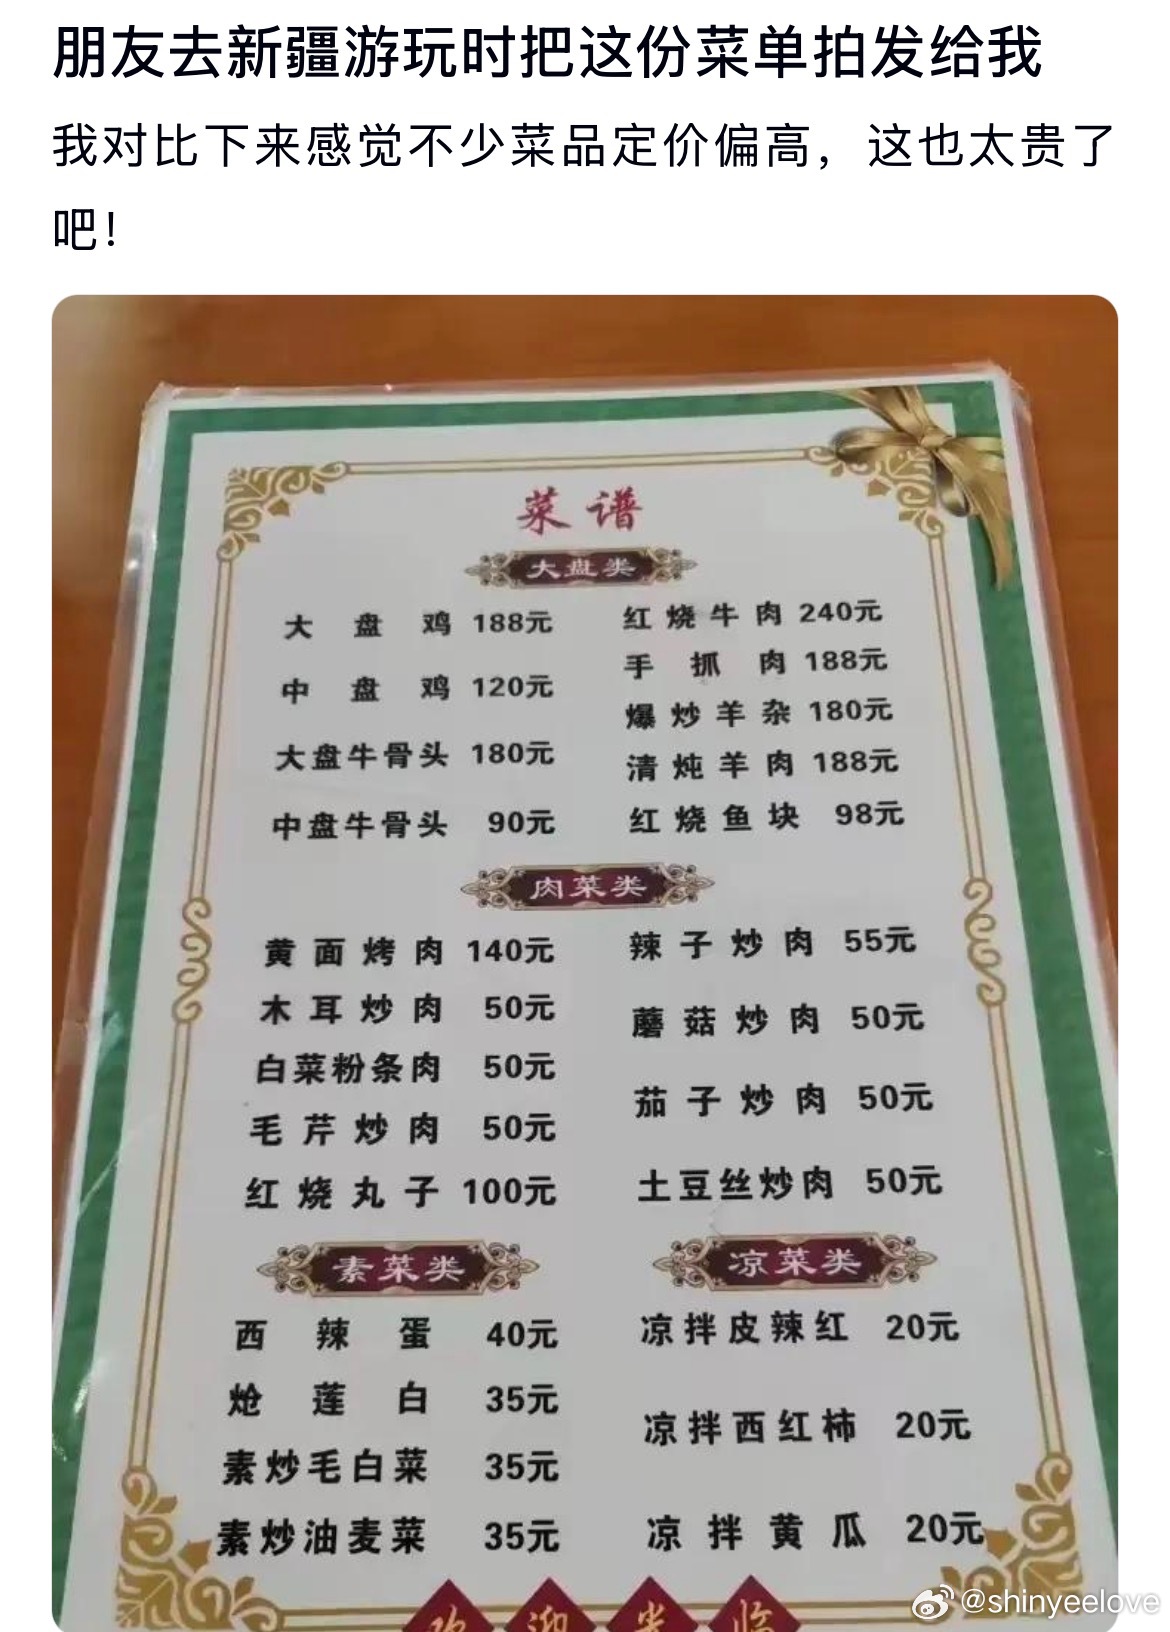 朋友去新疆游玩时把这份菜单拍发给我
我对比下来感觉不少菜品定价偏高，这也太贵了
吧！
菜谱
大盘类
大盘鸡 188元
中盘鸡 120元
大盘牛骨头 180元
中盘牛骨头 90元
红烧牛肉 240元
手抓肉 188元
爆炒羊杂 180元
清炖羊肉 188元
红烧鱼块 98元
肉菜类
黄面烤肉 140元
木耳炒肉 50元
白菜粉条肉 50元
毛芹炒肉 50元
红烧丸子 100元
辣子炒肉 55元
蘑菇炒肉 50元
茄子炒肉 50元
土豆丝炒肉 50元
素菜类
西辣蛋 40元
炝莲白 35元
素炒毛白菜 35元
素炒油麦菜 35元
凉菜类
凉拌皮辣红 20元
凉拌西红柿 20元
凉拌黄瓜 20元
欢迎光临
@shinyeelove